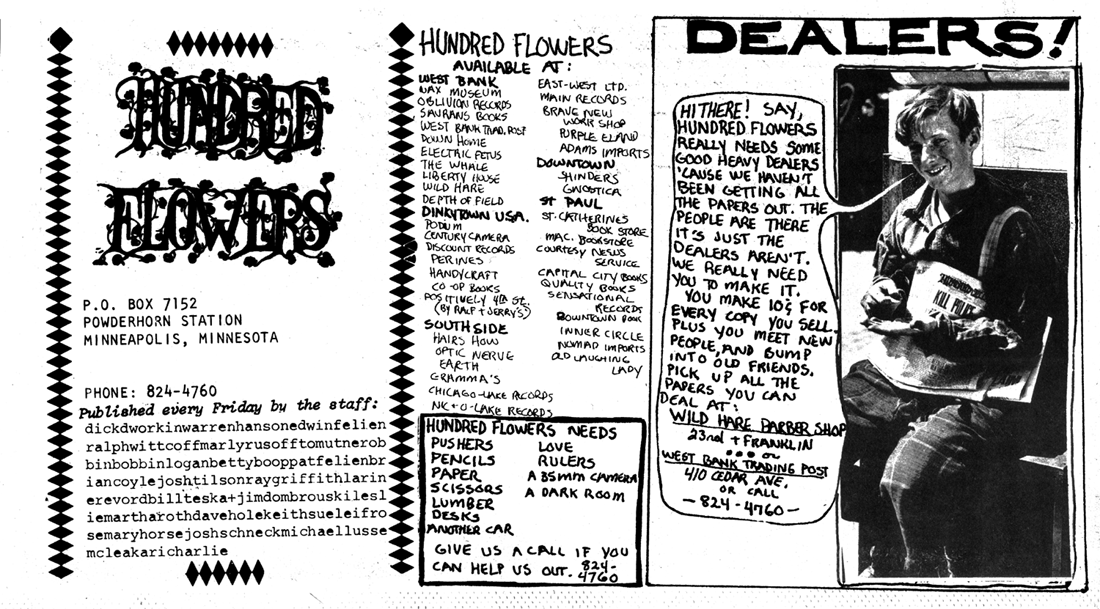 HUNDRED
FLOWERS
P.O. BOX 7152
POWDERHORN STATION
MINNEAPOLIS, MINNESOTA
PHONE: 824-4760
Published every Friday by the staff:
dickdworkinwarrenhansonedwinfelien
ralphwittcoffmarlyrusofftomutnerob
binbobbinloganbettybooppatfelienbr
iancoylejoshtilsonraygriffithlarin
erevordbillteska+jimdombrouskilesl
iemartharothdaveholekeithsueleifro
semaryhorsejoshschneckmichaellusse
mcleakaricharlie
HUNDRED FLOWERS
AVAILABLE AT:
WEST BANK
WAX MUSEUM
OBLIVION RECORDS
SAVRANS BOOKS
WEST BANK TRAD. POST
DOWN HOME
ELECTRIC FETUS
THE WHALE
LIBERTY HOUSE
WILD HARE
DEPTH OF FIELD
DINKYTOWN USA.
PODIUM
CENTURY CAMERA
DISCOUNT RECORDS
PERINES
HANDYCRAFT
CO-OP BOOKS
POSITIVELY 4th ST.
(BY RALF + JERRY'S)
SOUTH SIDE
HAIRS HOW
OPTIC NERVE
EARTH
GRAMMA'S
CHICAGO-LAKE RECORDS
NIC+O-LAKE RECORDS
EAST-WEST LTD.
MAIN RECORDS
BRAVE NEW
WORK SHOP
PURPLE ELAND
ADAMS IMPORTS
DOWNTOWN
SHINDERS
GNOSTICA
ST PAUL
ST. CATHERINES
BOOK STORE
MAC. BOOKSTORE
COURTESY NEWS
SERVICE
CAPITAL CITY BOOKS
QUALITY BOOKS
SENSATIONAL
RECORDS
DOWNTOWN BOOK
INNER CIRCLE
NOMAD IMPORTS
OLD LAUGHING
LADY
HUNDRED FLOWERS NEEDS
PUSHERS
PENCILS
PAPER
SCISSORS
LUMBER
DESKS
ANOTHER CAR
LOVE
RULERS
A 35mm CAMERA
A DARK ROOM
GIVE US A CALL IF YOU
CAN HELP US OUT. 824-
4760
DEALERS!
HI THERE! SAY,
HUNDRED FLOWERS
REALLY NEEDS SOME
GOOD HEAVY DEALERS
'CAUSE WE HAVEN'T
BEEN GETTING ALL
THE PAPERS OUT. THE
PEOPLE ARE THERE
IT'S JUST THE
DEALERS AREN'T.
WE REALLY NEED
YOU TO MAKE IT.
YOU MAKE 10¢ FOR
EVERY COPY YOU SELL.
PLUS YOU MEET NEW
PEOPLE, AND BUMP
INTO OLD FRIENDS.
PICK UP ALL THE
PAPERS YOU CAN
DEAL AT:
WILD HARE BARBER SHOP
23rd + FRANKLIN
••• or
WEST BANK TRADING POST
410 CEDAR AVE.
OR CALL
-824-4760-
KILL